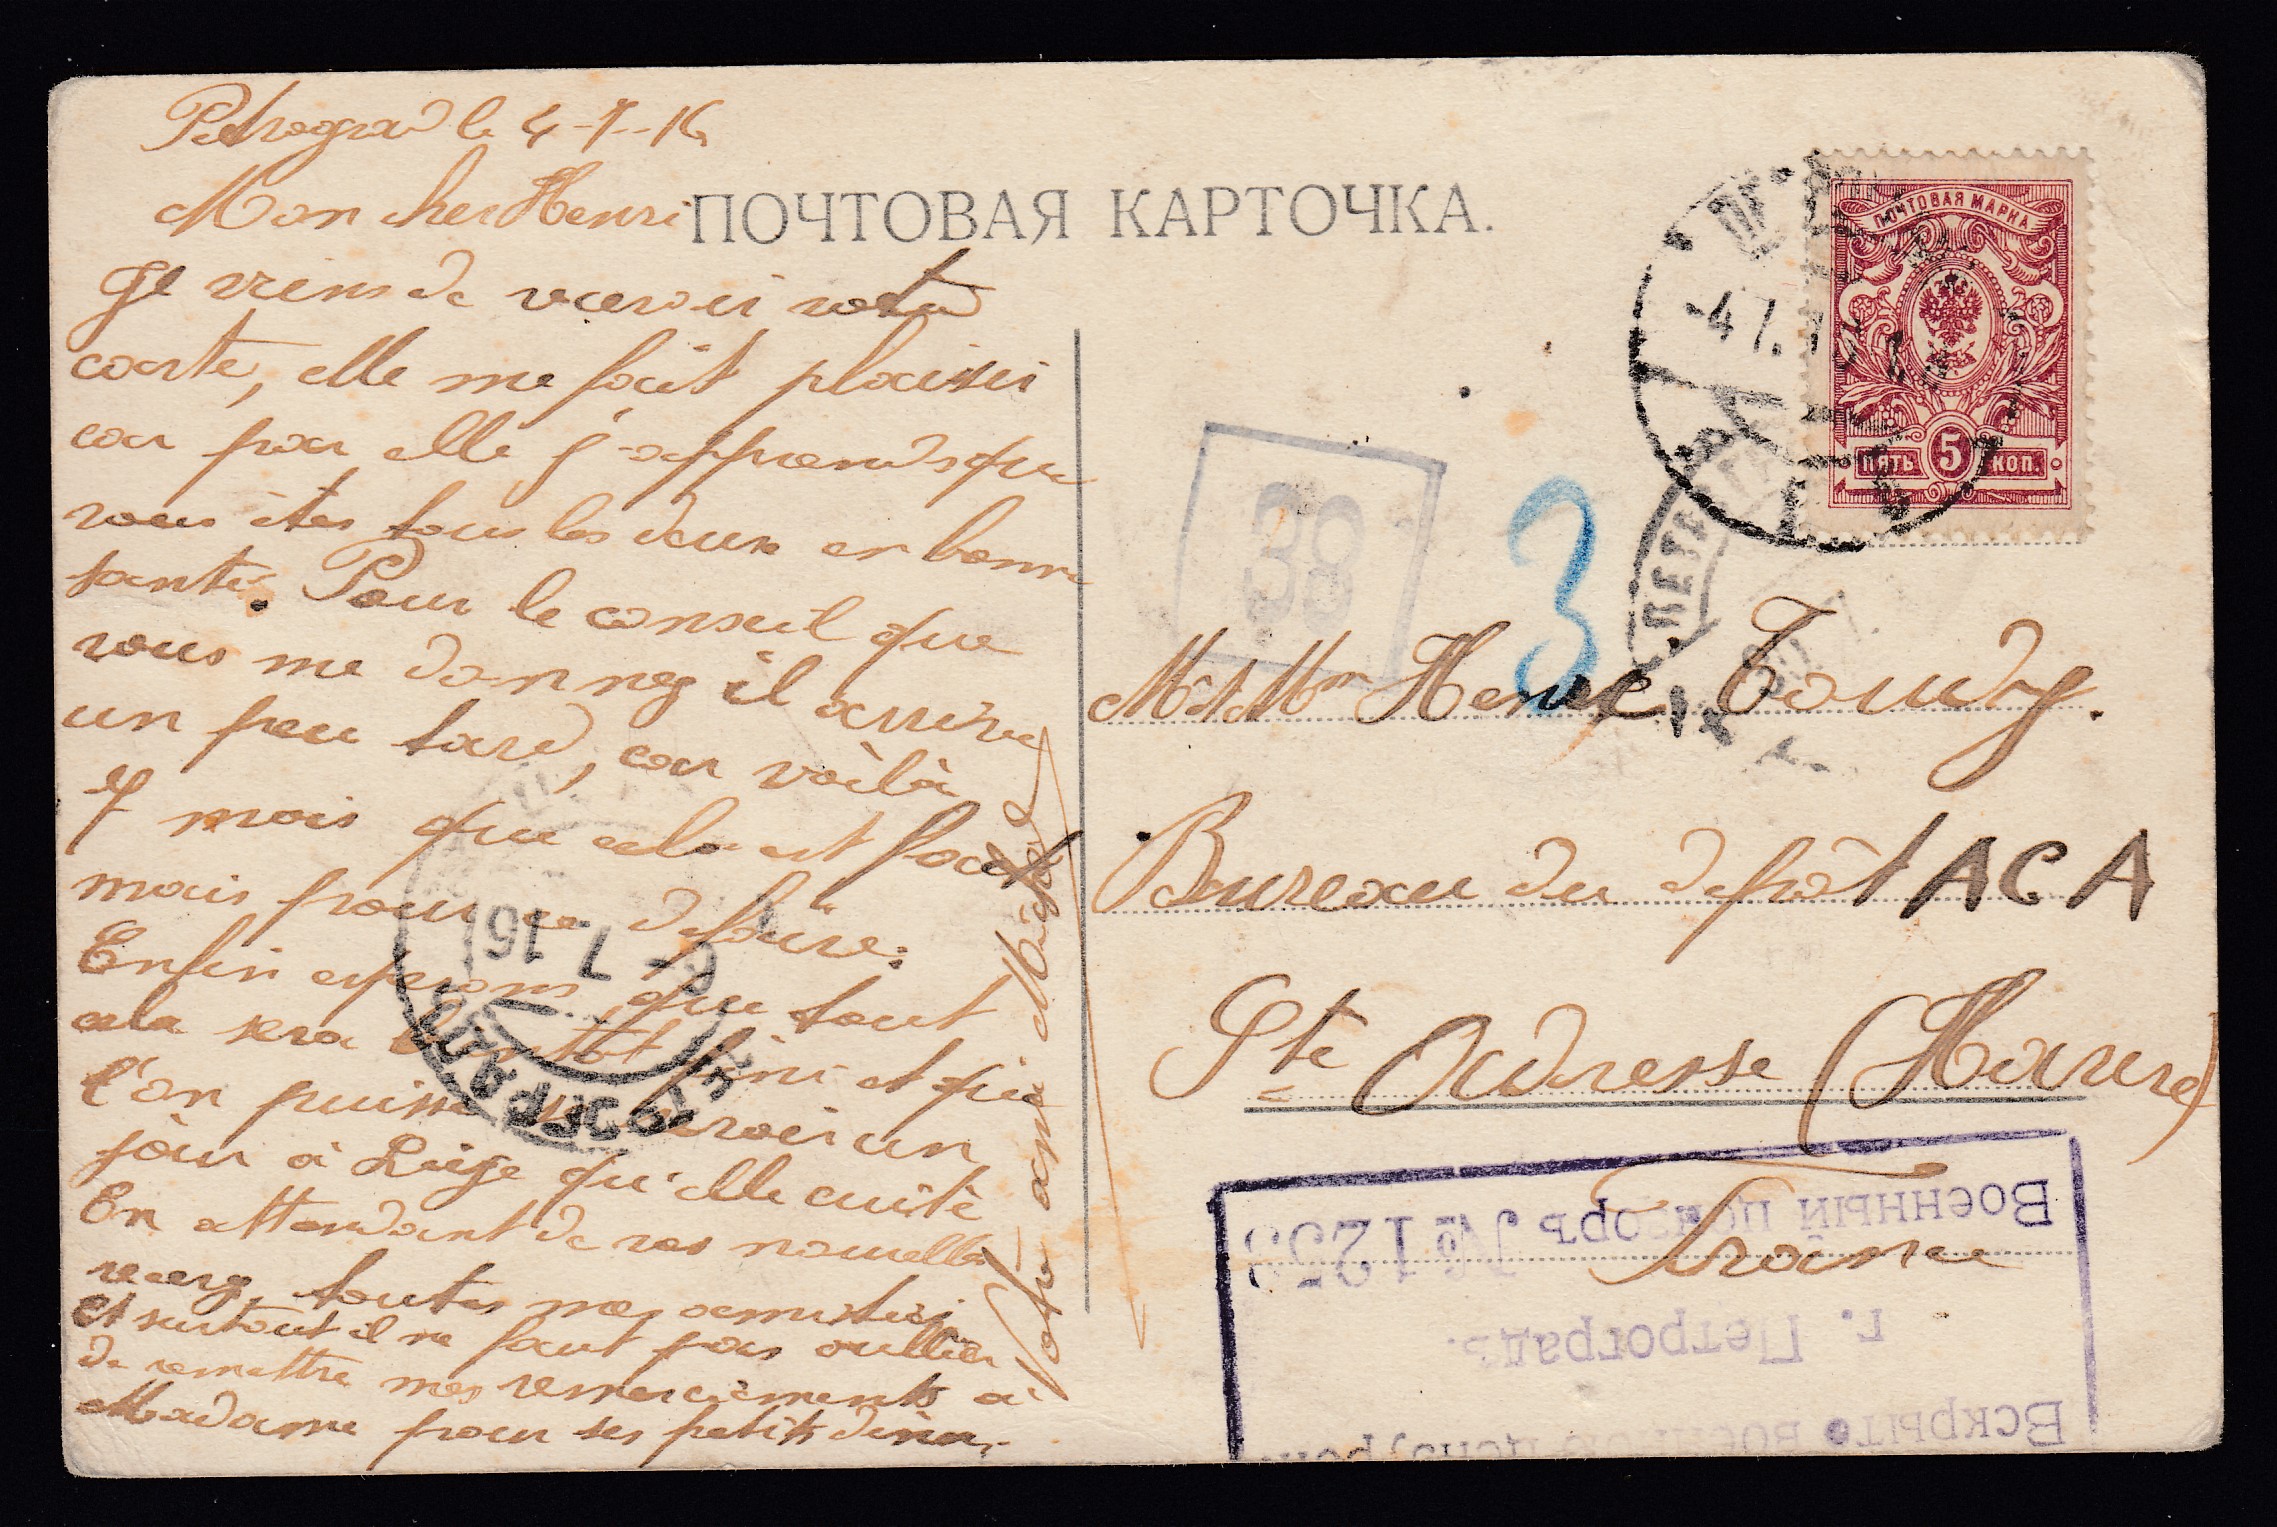 Petrograd le 4-7-16
Mon cher Henri
ПОЧТОВАЯ КАРТОЧКА.
Je viens de recevoir votre
carte, elle me fait plaisir
car par elle j'apprends que
vous êtes tous les deux en bonne
santé. Pour le conseil que
vous me donnez il arrive
un peu tard, car voilà
7 mois que cela est fait
mais pour de défaire.
Enfin espérons que tout
cela sera bientot fini et que
l'on puisse se revoir un
jour à Liége qu'elle cuité
En attendant de vos nouvelles
recevez toutes mes amitiés
et surtout il ne faut pas oublier
de remettre mes remerciements à
Madame pour ses petits
Votre ami
ПОЧТОВАЯ МАРКА
ПЯТЬ 5 КОП.
-4 7.16
38
3
M & Mm Henri Toudy.
Bureau du depôt ACA
Ste Adresse (Havre)
France
Военный цензоръ № 1253
г. Петроградъ.
Вскрыто военной цензурой
ПЕТРОГРАДЪ
7 16